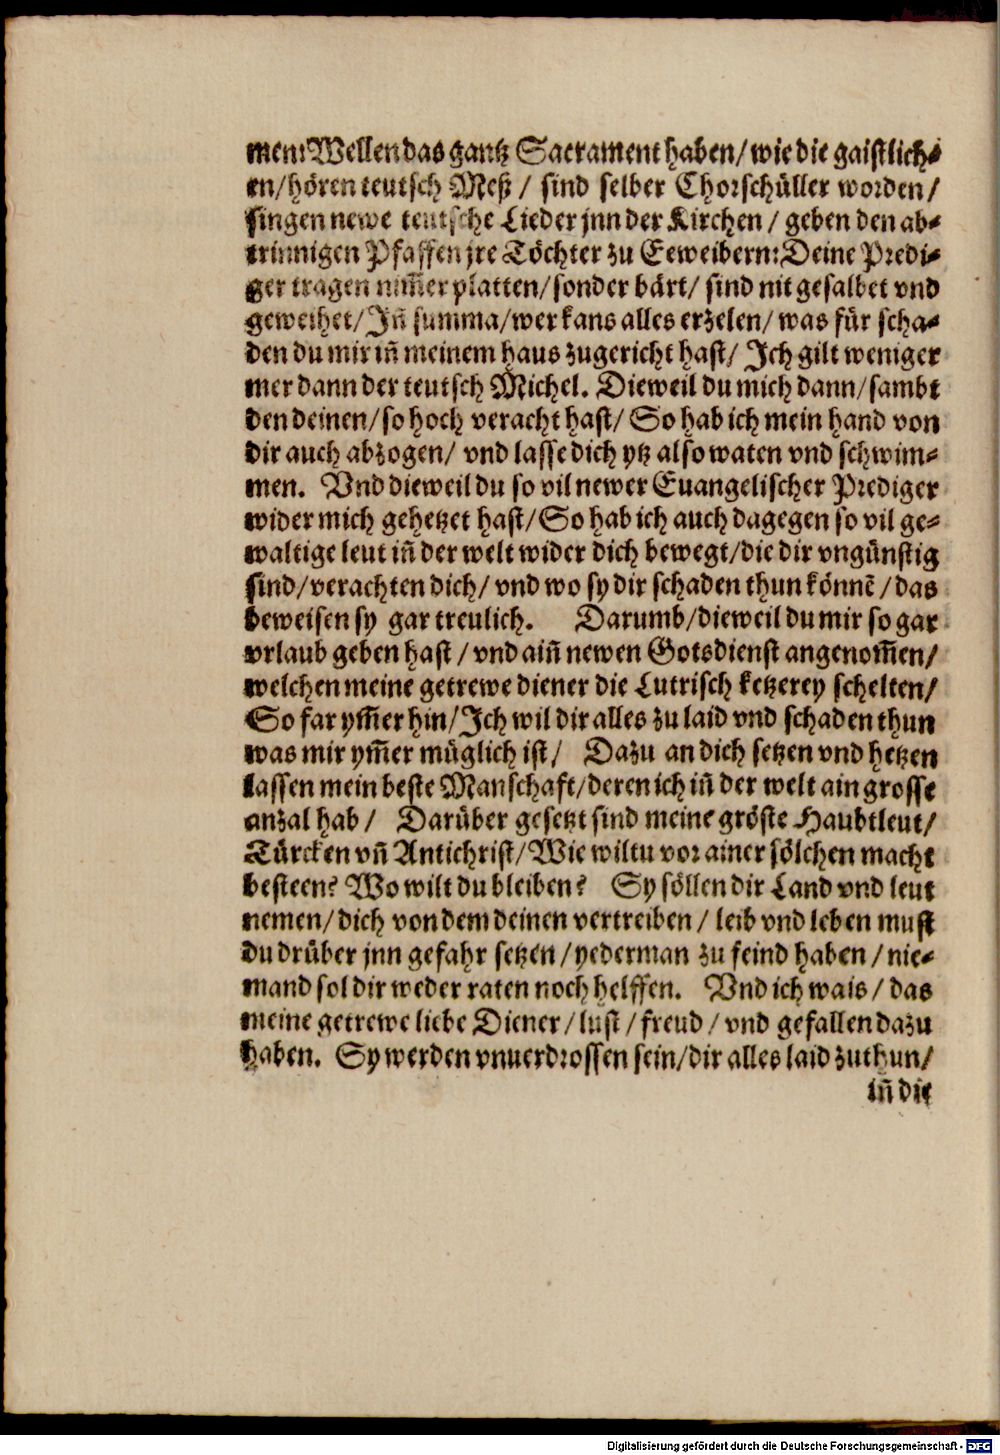 men: Wellen das gantz Sacrament haben/ wie die gaistlich⸗
en/ hören teutsch Meß/ sind selber Chorschüller worden/
singen newe teutsche Lieder jnn der Kirchen/ geben den ab⸗
trinnigen Pfaffen jre Töchter zu Eeweibern: Deine Predi⸗
ger tragen nim̃er platten/ sonder bärt/ sind nit gesalbet vnd
geweihet/ Jñ summa/ wer kans alles erzelen/ was für scha⸗
den du mir iñ meinem haus zugericht hast/ Jch gilt weniger
mer dann der teutsch Michel. Dieweil du mich dann/ sambt
den deinen/ so hoch veracht hast/ So hab ich mein hand von
dir auch abzogen/ vnd lasse dich ytz also waten vnd schwim⸗
men. Vnd dieweil du so vil newer Euangelischer Prediger
wider mich gehetzet hast/ So hab ich auch dagegen so vil ge⸗
waltige leut iñ der welt wider dich bewegt/ die dir vngünstig
sind/ verachten dich/ vnd wo sy dir schaden thun könnẽ/ das
beweisen sy gar treulich. Darumb/ dieweil du mir so gar
vrlaub geben hast/ vnd aiñ newen Gotsdienst angenom̃en/
welchen meine getrewe diener die Lutrisch ketzerey schelten/
So far ym̃er hin/ Jch wil dir alles zu laid vnd schaden thun
was mir ym̃er müglich ist/ Dazu an dich setzen vnd hetzen
lassen mein beste Manschaft/ deren ich iñ der welt ain grosse
anzal hab/ Darüber gesetzt sind meine gröste Haubtleut/
Türcken vñ Antichrist/ Wie wiltu vor ainer sölchen macht
besteen? Wo wilt du bleiben? Sy söllen dir Land vnd leut
nemen/ dich von dem deinen vertreiben/ leib vnd leben must
du drüber jnn gefahr setzen/ yederman zu feind haben/ nie⸗
mand sol dir weder raten noch helffen. Vnd ich wais/ das
meine getrewe liebe Diener/ lust/ freud/ vnd gefallen dazu
haben. Sy werden vnuerdrossen sein/ dir alles laid zuthun/
iñ die
Digitalisierung gefördert durch die Deutsche Forschungsgemeinschaft - DFG